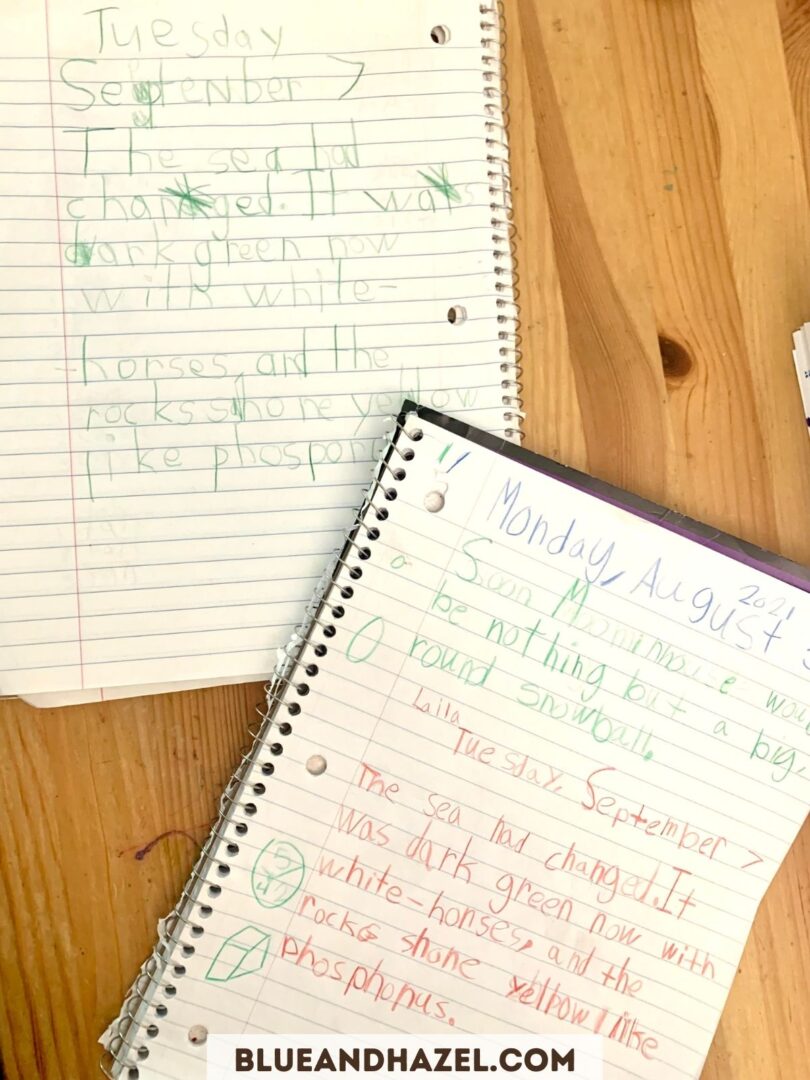 Tuesday
September 7
The sea had
changed. It was
dark green now
with white-
-horses, and the
rocks shone yellow
like phospor
Monday, August
2021
Soon Moominhouse wou
be nothing but a big,
round snowball.
Laila
Tuesday, September 7
The sea had changed. It
was dark green now with
white-horses, and the
rocks shone yellow like
phosphorus.
BLUEANDHAZEL.COM